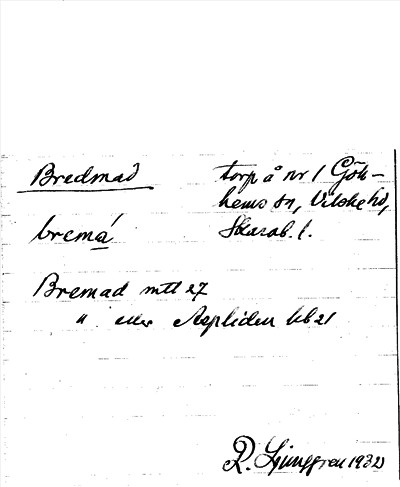 Bredmad
torp å nr 1 Gök-
hems sn, Vilske hd,
Skarab. l.
bremá
Bremad mtl 27
" eller Aspliden hb 21
R. Ljunggren 1932